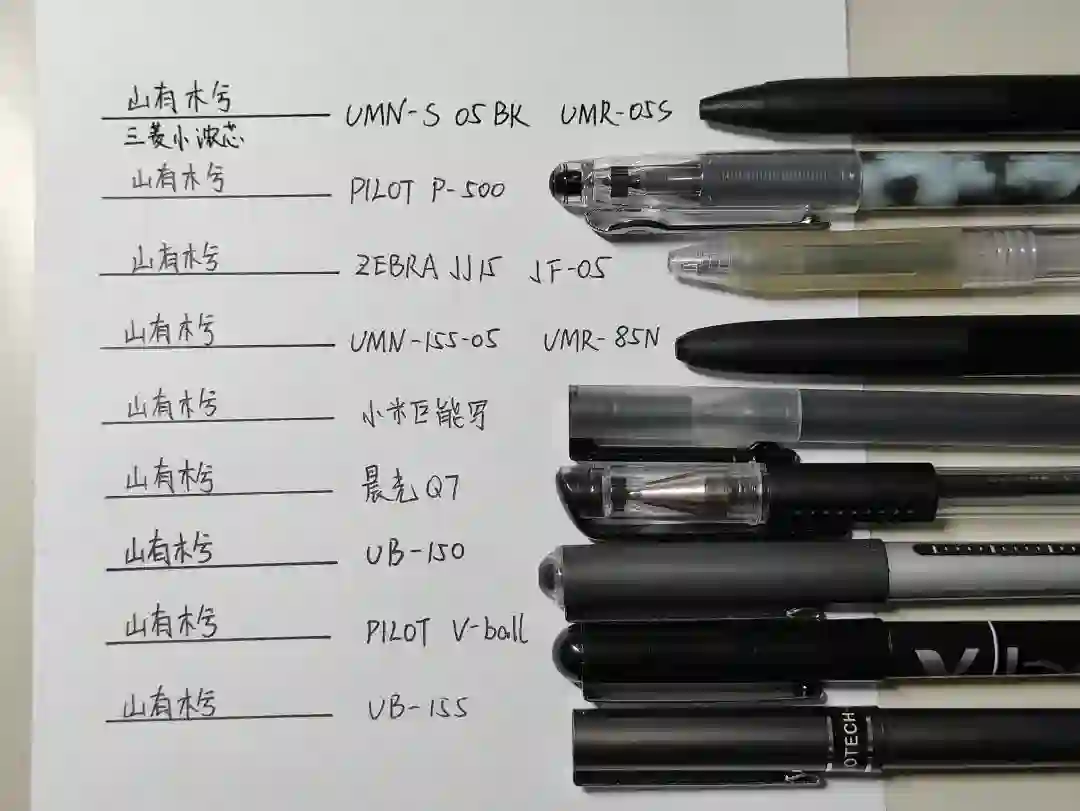 山有木兮 UMN-S 05 BK UMR-05S
三菱小浓芯
山有木兮 PILOT P-500
山有木兮 ZEBRA JJ15 JF-05
山有木兮 UMN-155-05 UMR-85N
山有木兮 小米巨能写
山有木兮 晨光Q7
山有木兮 UB-150
山有木兮 PILOT V-ball
山有木兮 UB-155
OTECH